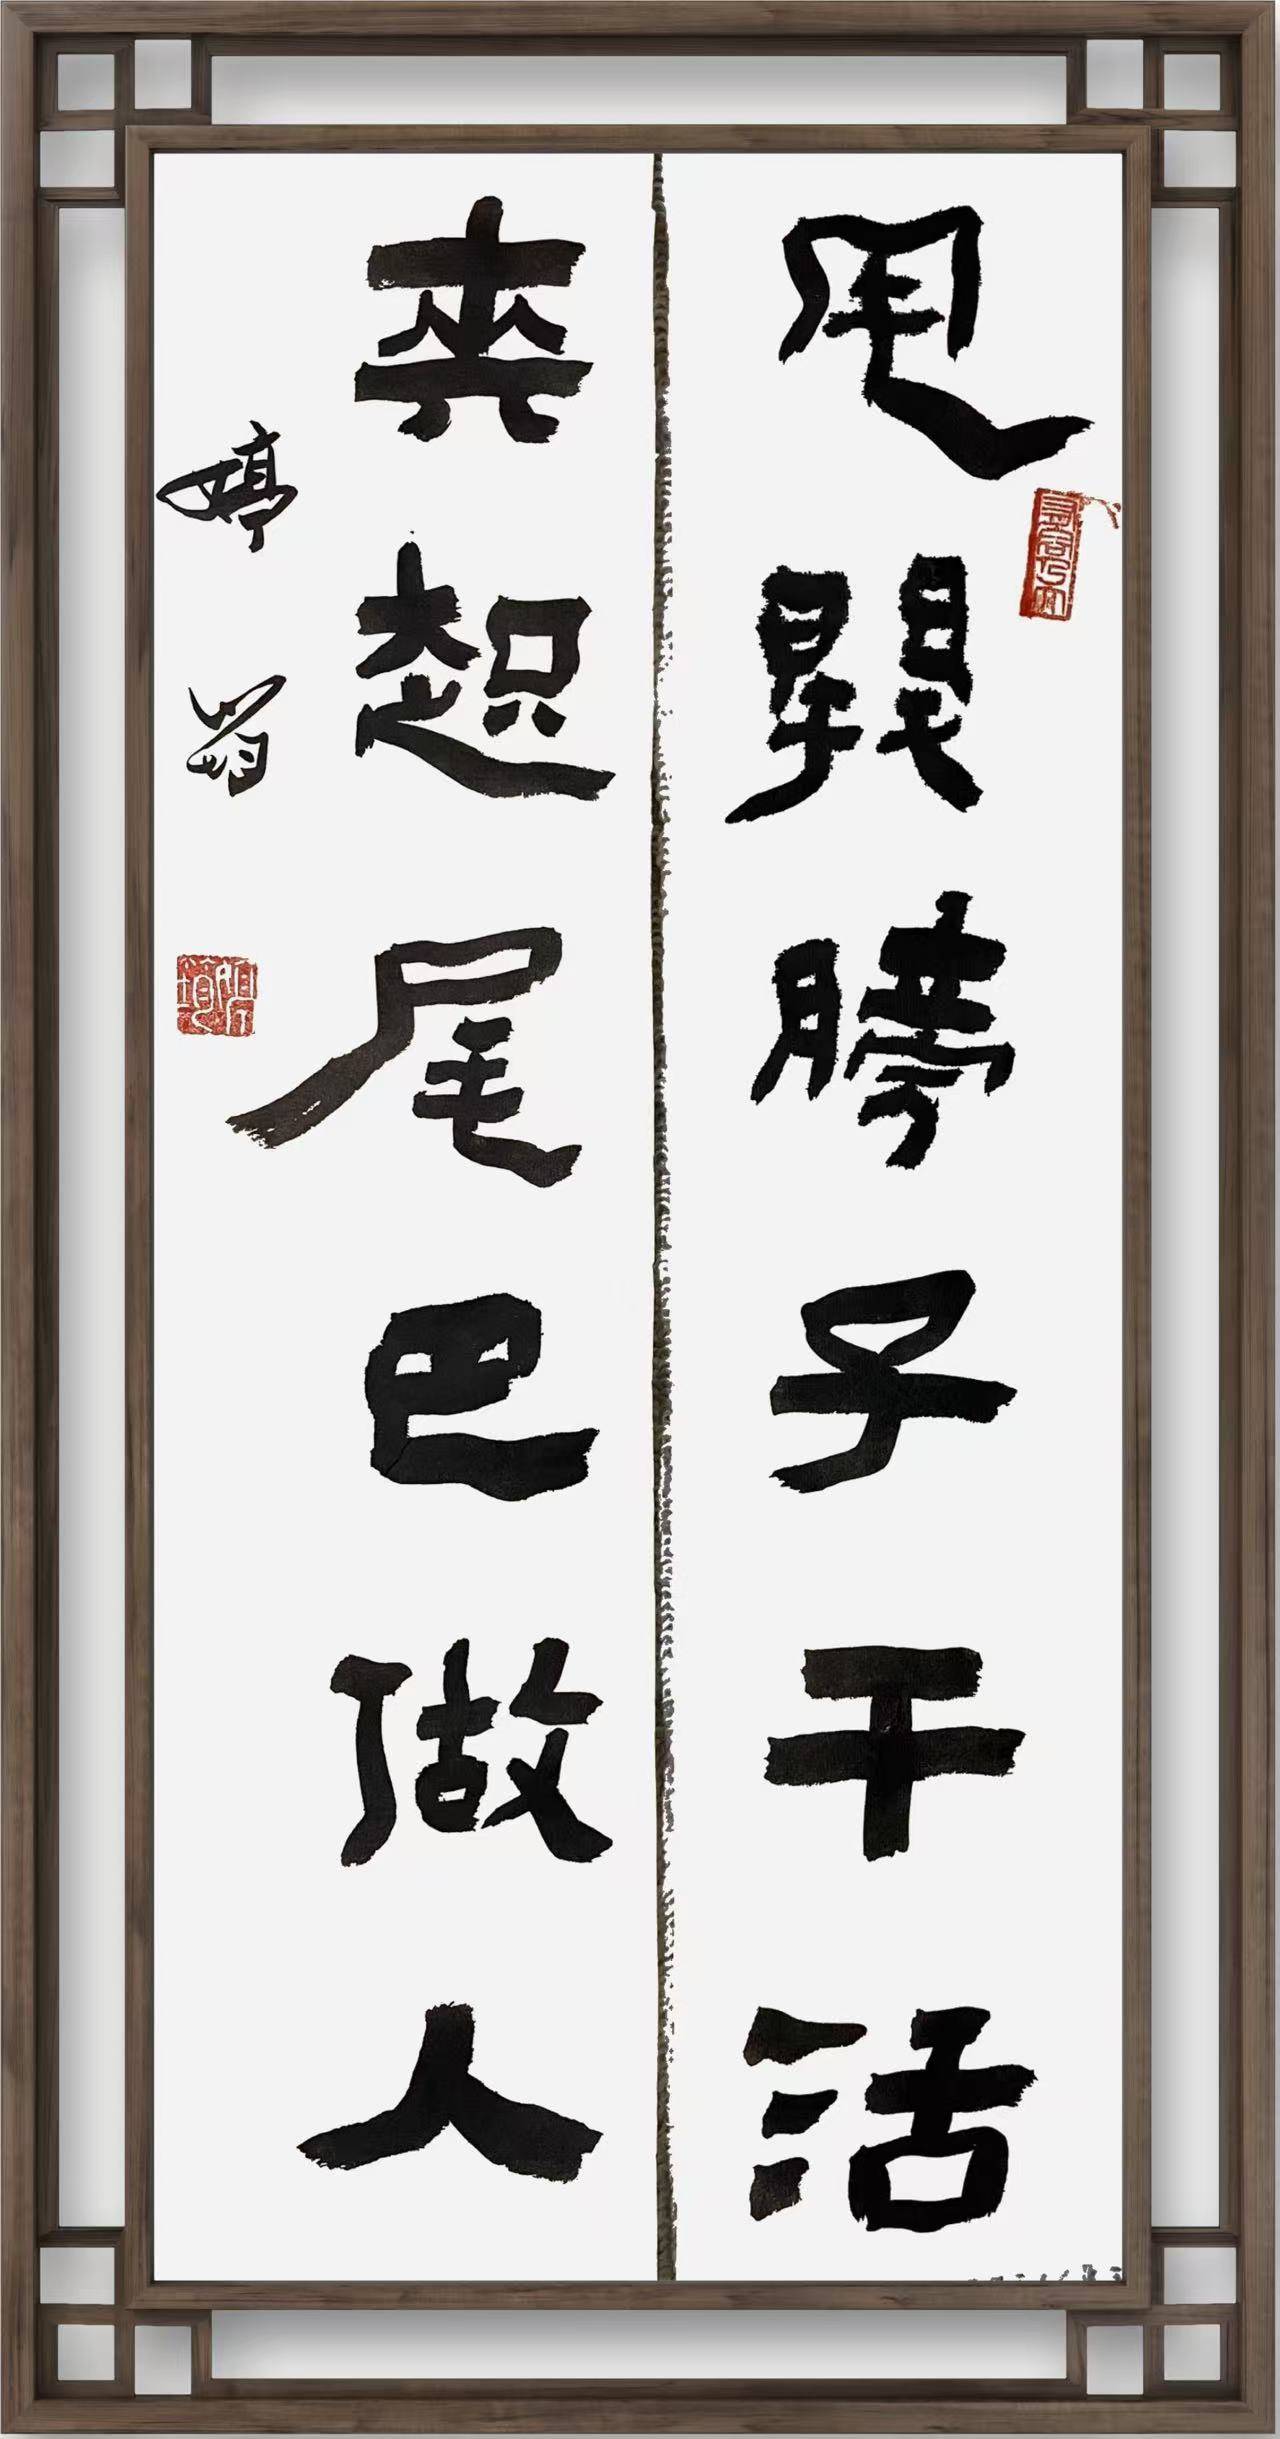 甩開膀子干活
夾起尾巴做人
婷翁